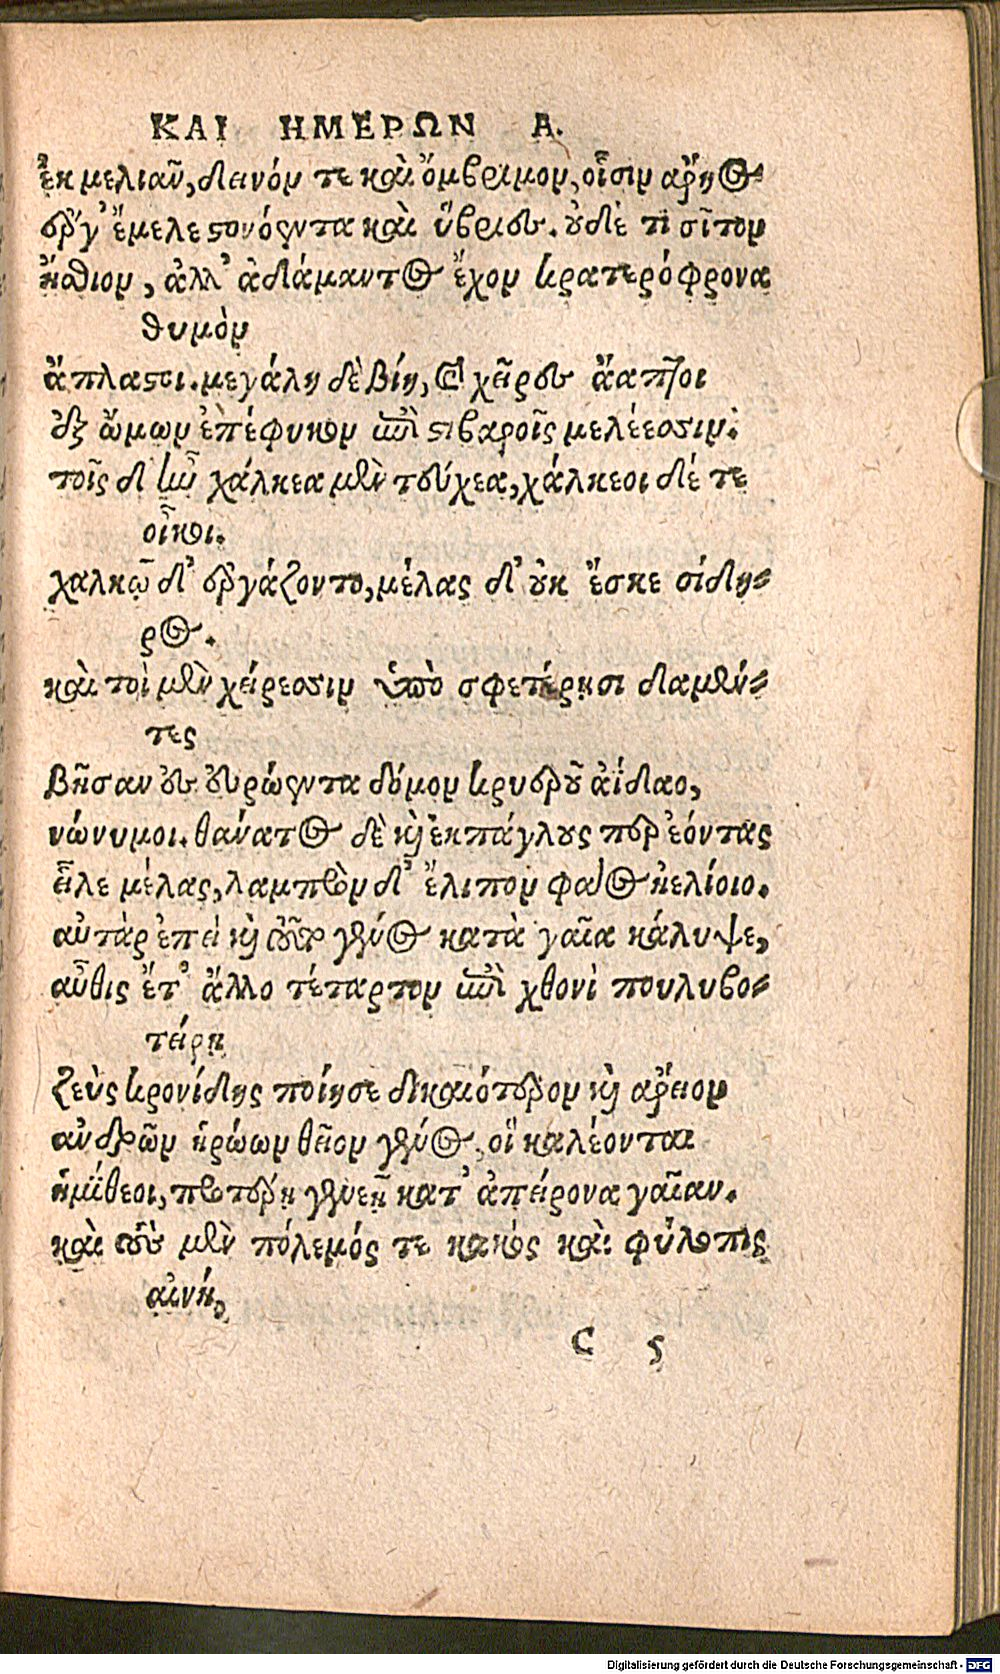 ΚΑΙ ΗΜΕΡΩΝ Α.
ἐκ μελιᾶν, δεινόν τε καὶ ὄμβριμον, οἷσιν ἄρηος
ἔργ' ἔμελε στονόεντα καὶ ὕβριες. οὐδέ τι σῖτον
ἤσθιον, ἀλλ' ἀδάμαντος ἔχον κρατερόφρονα
θυμὸν
ἄπλαστοι. μεγάλη δὲ βίη, καὶ χεῖρες ἄαπτοι
ἐξ ὤμων ἐπέφυκον ἐπὶ στιβαροῖς μελέεσσιν.
τοῖς δ' ἦν χάλκεα μὲν τεύχεα, χάλκεοι δέ τε
οἶκοι.
χαλκῷ δ' ἐργάζοντο, μέλας δ' οὐκ ἔσκε σίδη-
ρος.
καὶ τοὶ μὲν χείρεσσιν ὑπὸ σφετέρῃσι δαμέν-
τες
βῆσαν ἐς εὐρώεντα δόμον κρυεροῦ ἀΐδαο,
νώνυμοι. θάνατος δὲ καὶ ἐκπάγλους περ ἐόντας
εἷλε μέλας, λαμπρὸν δ' ἔλιπον φάος ἠελίοιο.
αὐτὰρ ἐπεὶ καὶ τοῦτο γένος κατὰ γαῖα κάλυψε,
αὖθις ἔτ' ἄλλο τέταρτον ἐπὶ χθονὶ πουλυβο-
τείρῃ
ζεὺς κρονίδης ποίησε δικαιότερον καὶ ἄρειον
ἀνδρῶν ἡρώων θεῖον γένος, οἳ καλέονται
ἡμίθεοι, προτέρῃ γενεῇ κατ' ἀπείρονα γαῖαν.
καὶ τοὺς μὲν πόλεμός τε κακὸς καὶ φύλοπις
αἰνή,
C ς
Digitalisierung gefördert durch die Deutsche Forschungsgemeinschaft - DFG